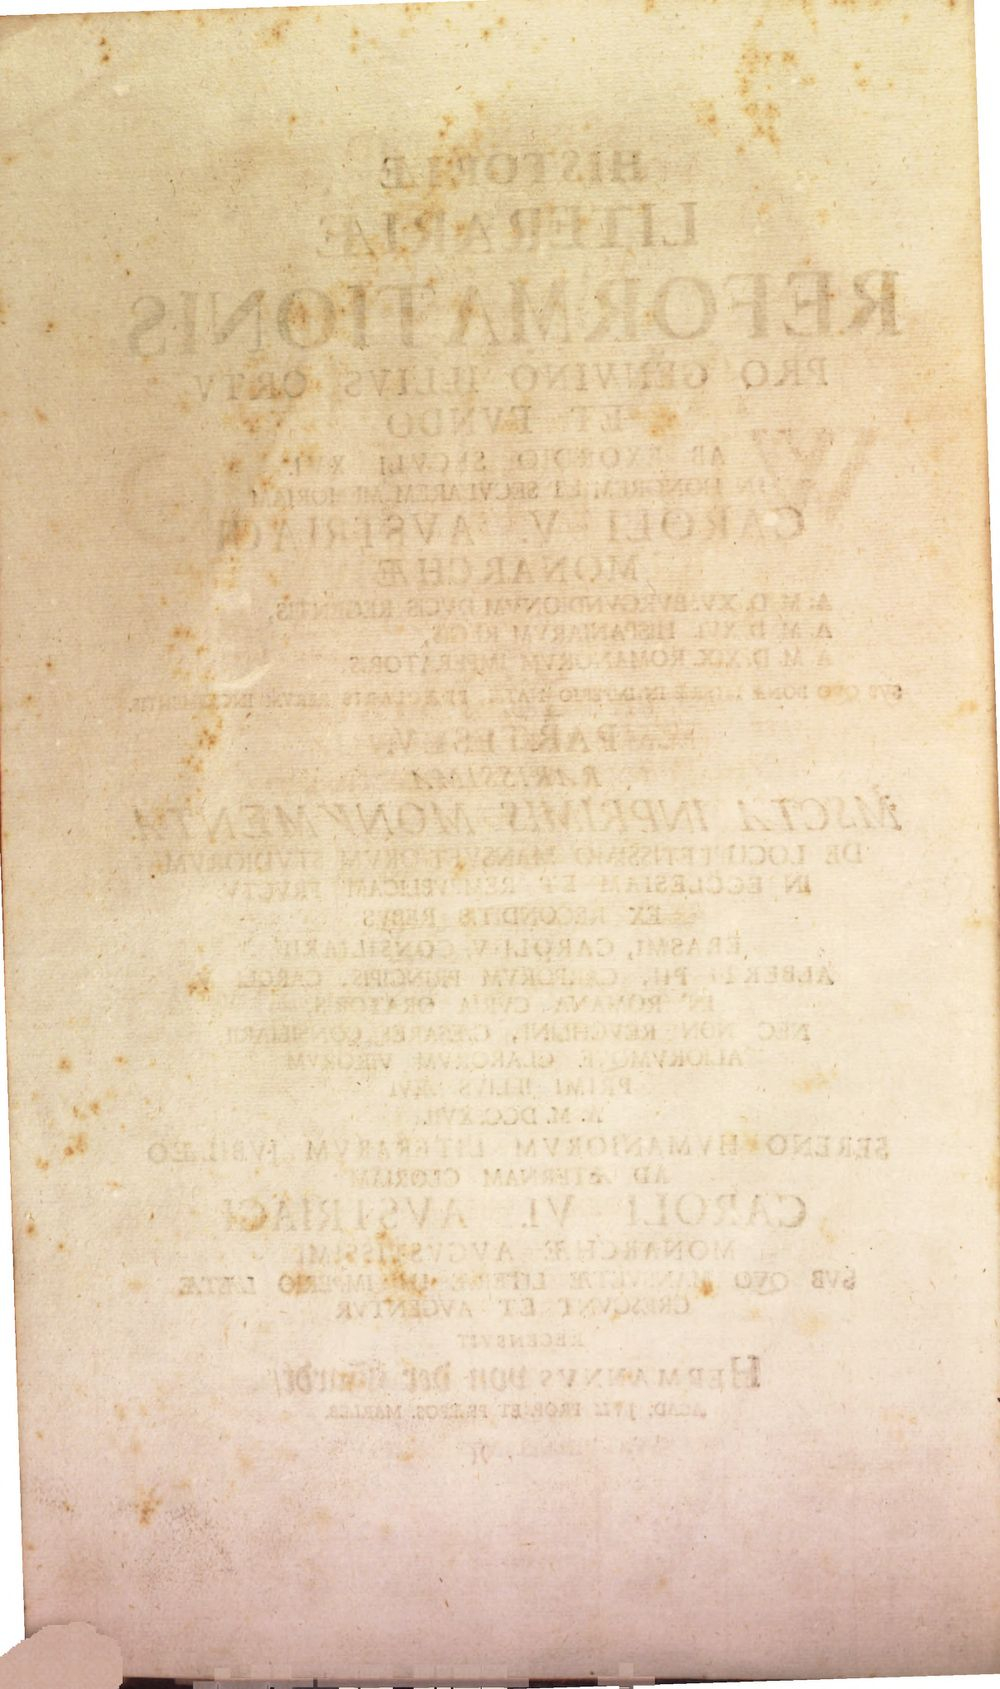 HISTORIÆ
LITERARIÆ
REFORMATIONIS
PRO GENVINO ILLIVS ORTV
ET FVNDO
AB EXORDIO SECVLI XVI.
IN HONOREM ET SECVLAREM MEMORIAM
CAROLI V. AVSTRIACI
MONARCHÆ
A. M D. XV. BVRGVNDIONVM DVCIS REGENTIS,
A. M D XVI. HISPANIARVM REGIS,
A M D. XIX. ROMANORVM IMPERATORIS.
SVB QVO BONÆ IN IMPERIO PRÆCLARIS RERVM INCREMENTIS.
PARTES V.
RARISSIMA
INPRIMIS MONVMENTA
DE LOCVPLETISSIMO MANSVETIORVM STVDIORVM
IN ECCLESIAM ET REMPVBLICAM FRVCTV
EX RECONDITÆ REBVS
ERASMI, CAROLI V. CONSILIARII
ALBERTI PII, CARPORVM PRINCIPIS, CAROLI V.
IN ROMANA CVRIA ORATORIS
NEC NON REVCHLINI, CÆSAREI CONSILIARII
ALIORVMQVE CLARORVM VIRORVM
PRIMI ILLIVS ÆVI
A. M. DCC. XVII.
SERENO HVMANIORVM LITERARVM JVBILÆO
AD ÆTERNAM GLORIAM
CAROLI VI. AVSTRIACI
MONARCHÆ AVGVSTISSIMI
SVB QVO MANSVETÆ LITERÆ IN IMPERIO LÆTÆ
CRESCVNT ET AVGENTVR
RECENSVIT
HERMANNVS von der Hardt /
ACAD. JVLIÆ PROF. ET PRÆPOS. MARIÆB.